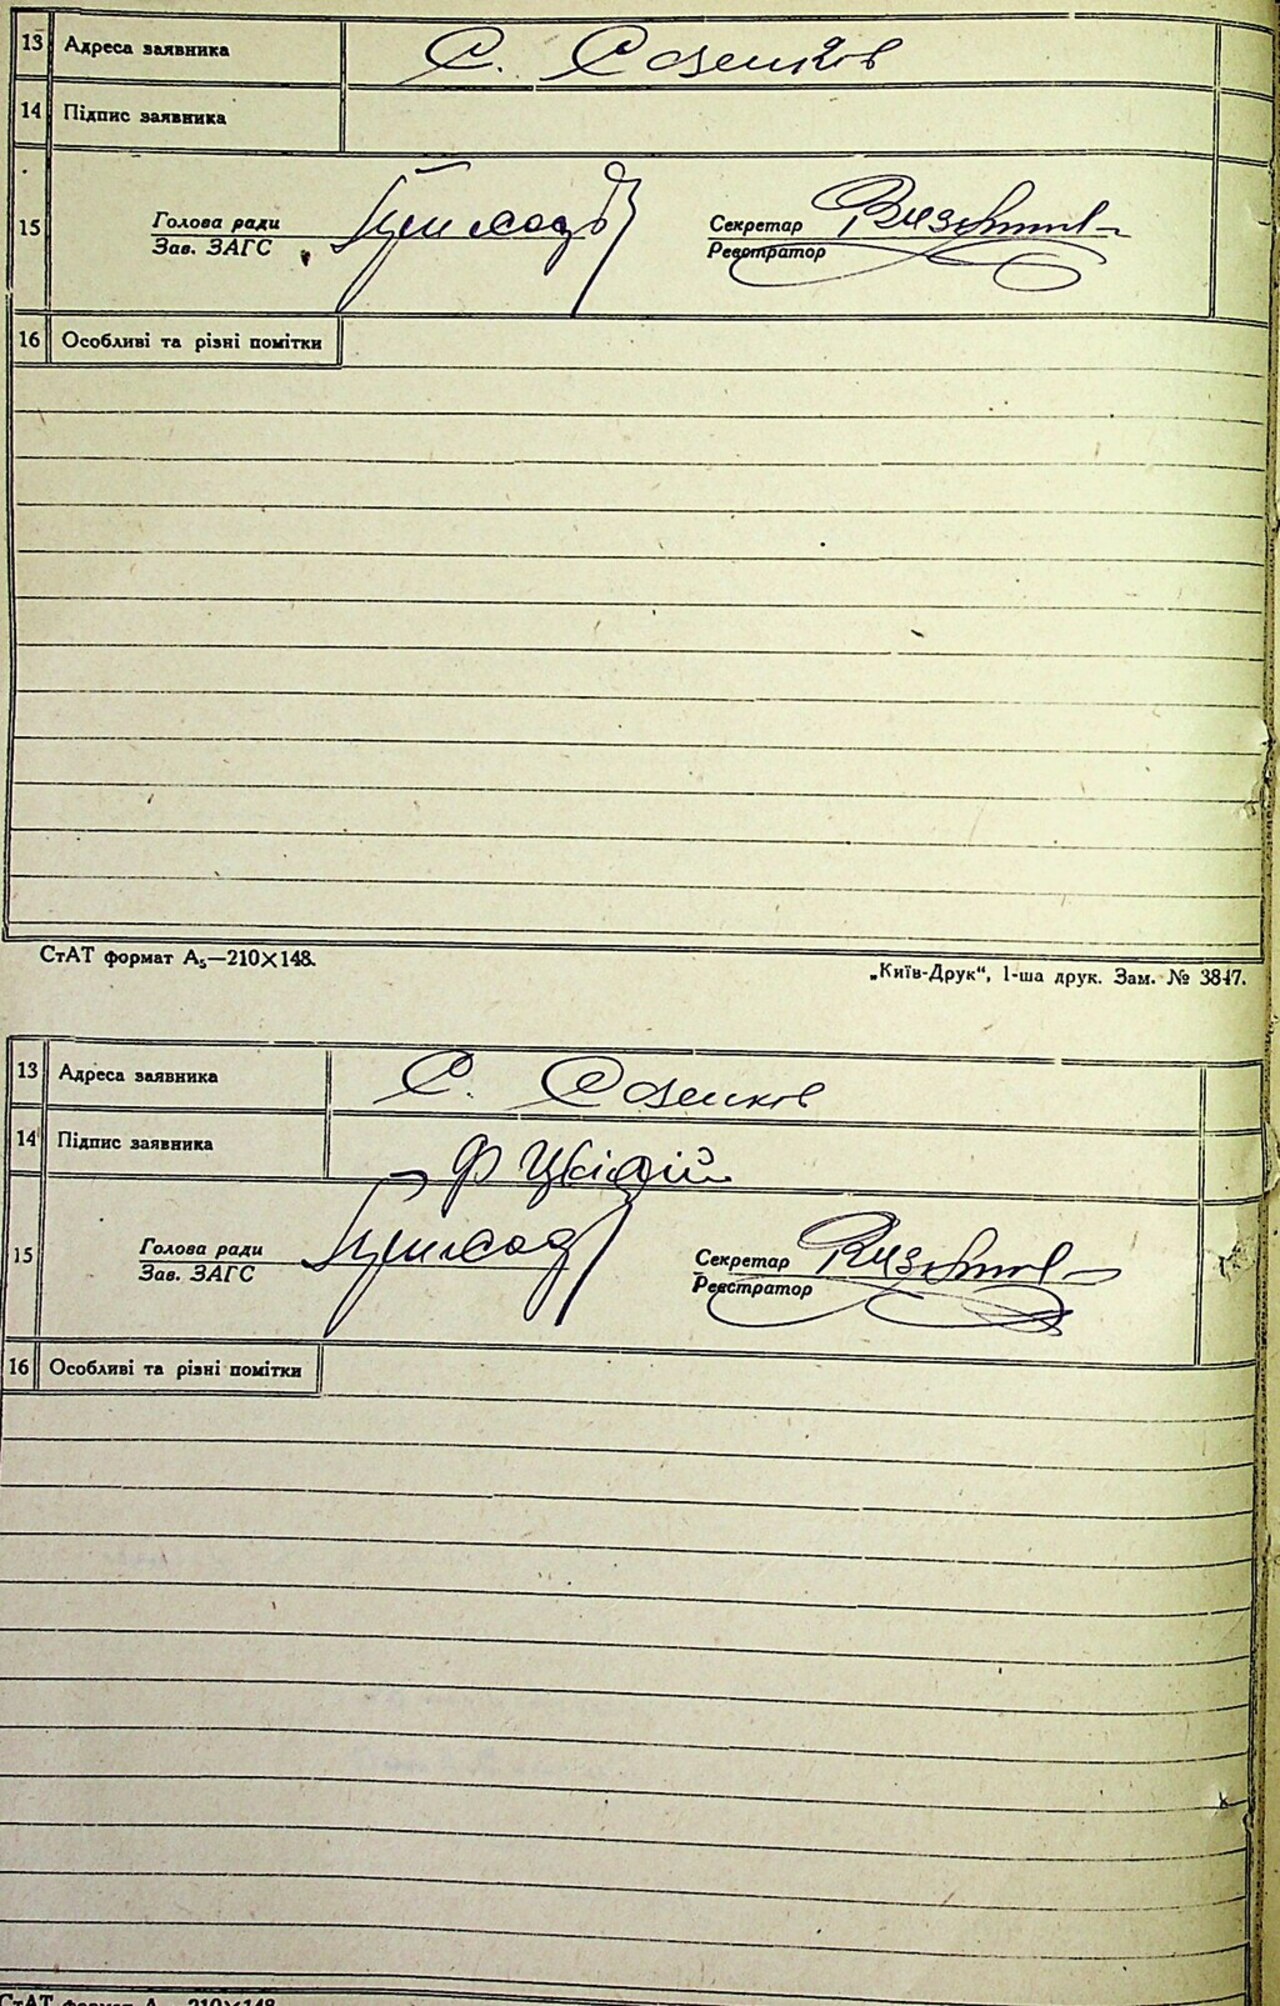 13 Адреса заявника С. Созенків
14 Підпис заявника
15 Голова ради
Зав. ЗАГС
Секретар
Реєстратор
16 Особливі та різні помітки
СтАТ формат А₅—210×148.
„Київ-Друк“, 1-ша друк. Зам. № 3847.
13 Адреса заявника С. Созенків
14 Підпис заявника
15 Голова ради
Зав. ЗАГС
Секретар
Реєстратор
16 Особливі та різні помітки
СтАТ формат А₅—210×148